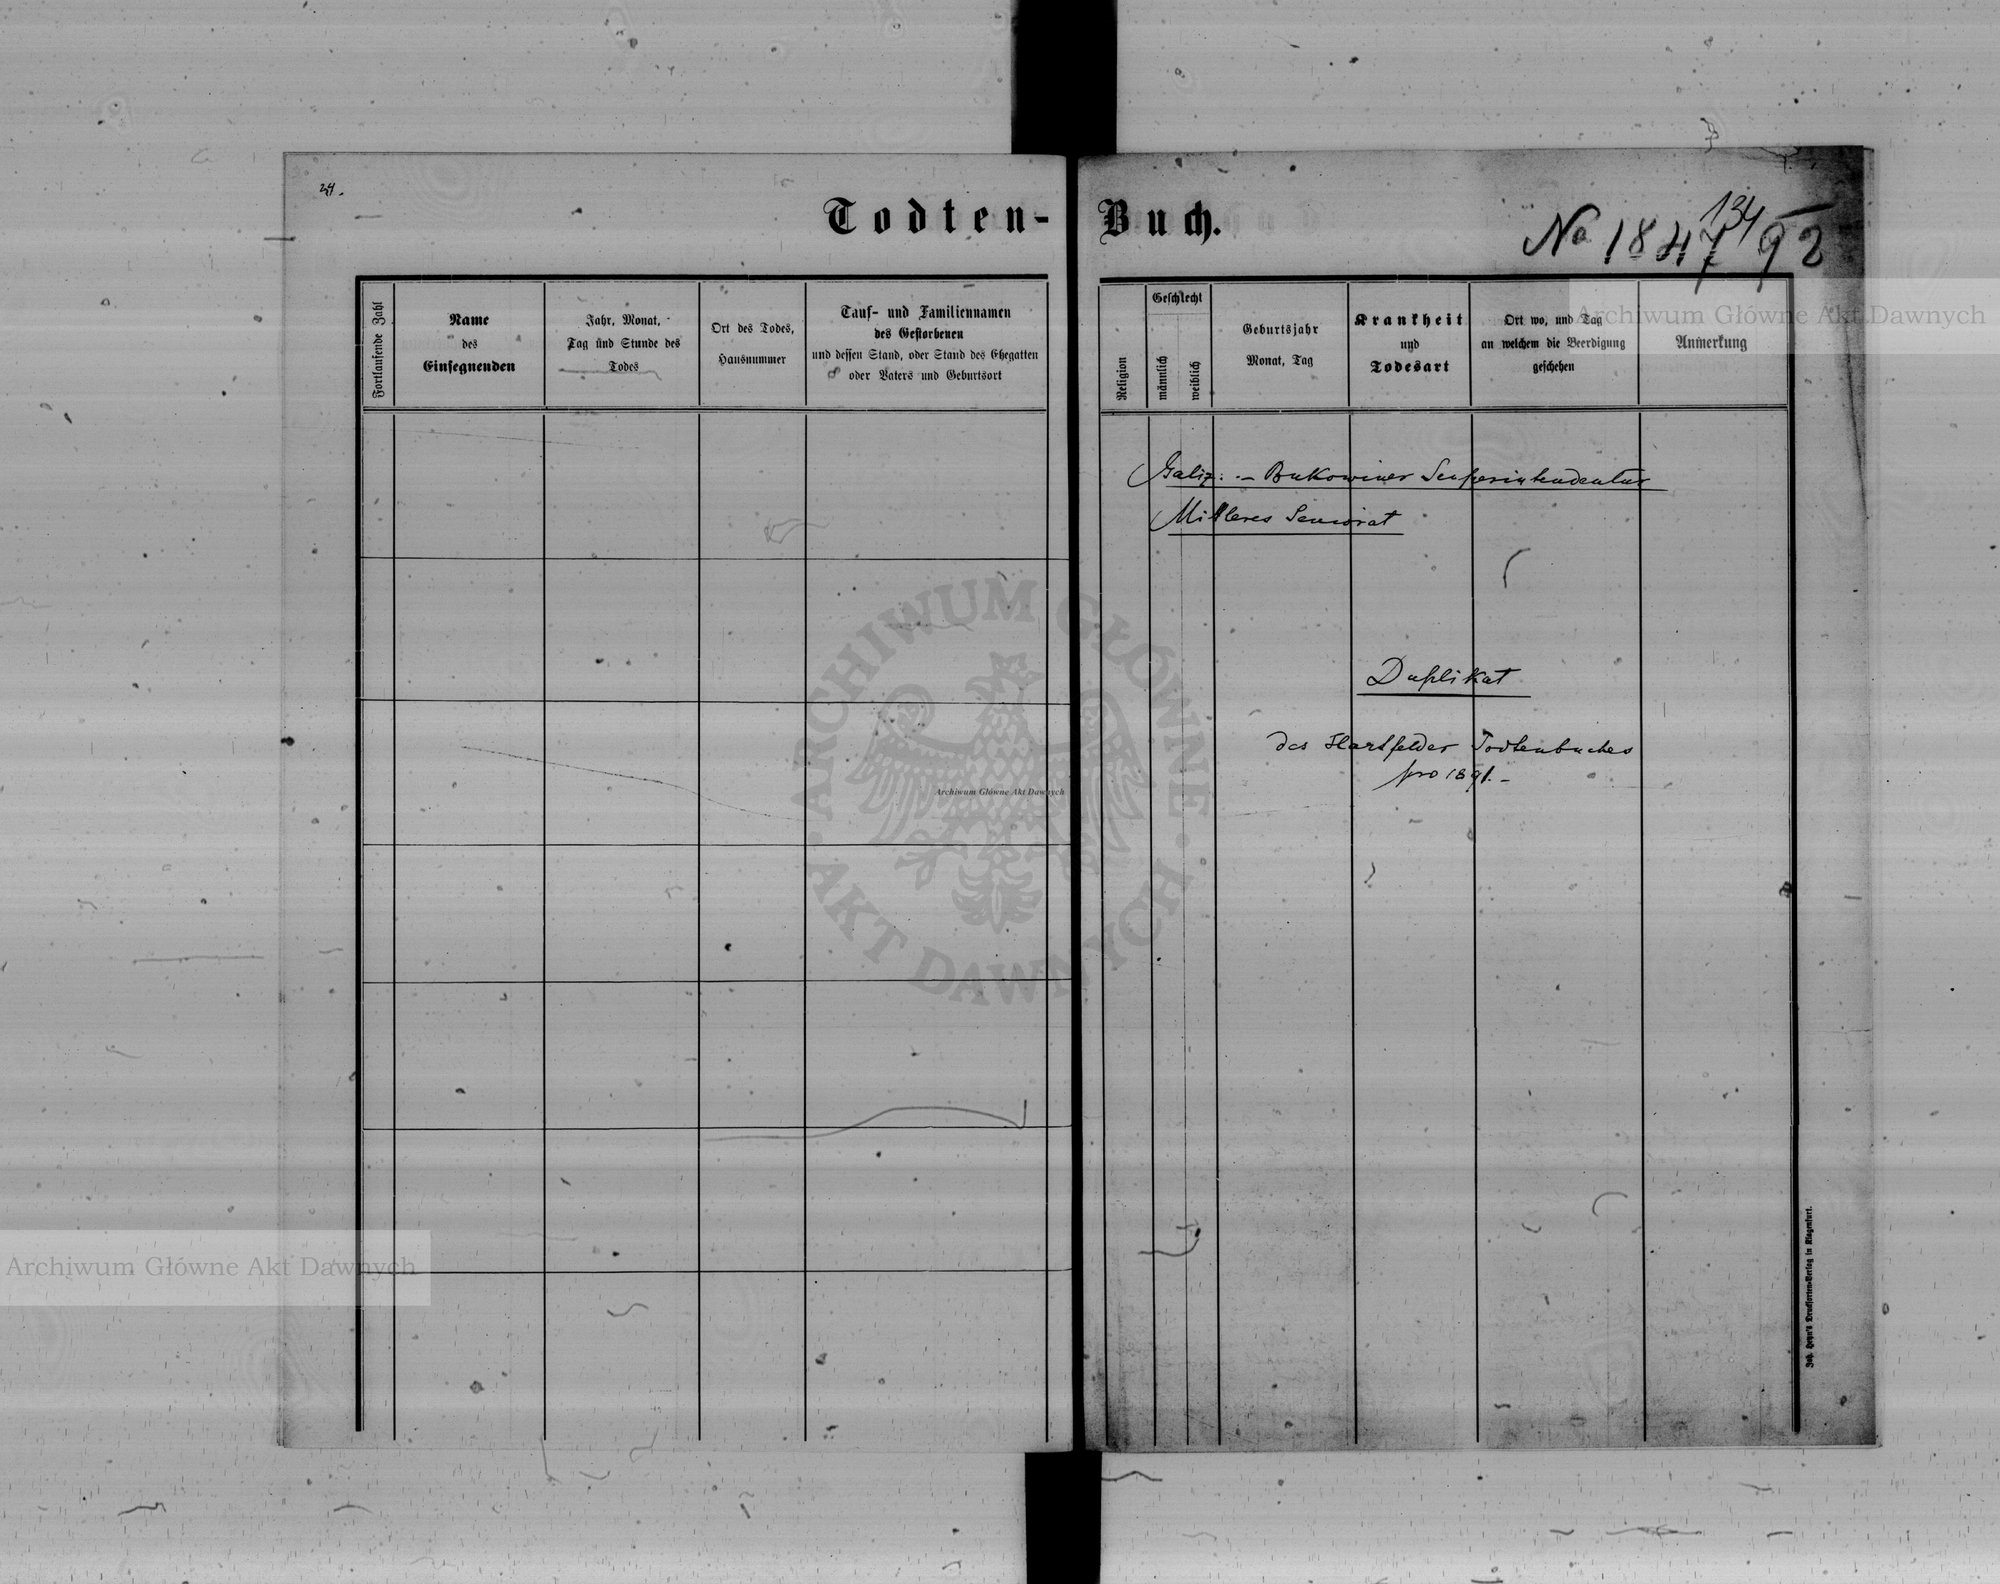 24.
Todten-Buch.
No 1847 92
134
Fortlaufende Zahl
Name
des
Einsegnenden
Jahr, Monat,
Tag und Stunde des
Todes
Ort des Todes,
Hausnummer
Tauf- und Familiennamen
des Gestorbenen
und dessen Stand, oder Stand des Ehegatten
oder Vaters und Geburtsort
Religion
Geschlecht
männlich
weiblich
Geburtsjahr
Monat, Tag
Krankheit
und
Todesart
Ort wo, und Tag
an welchem die Beerdigung
geschehen
Anmerkung
Galiz: - Bukowiner Superintendentur
Mittleres Seniorat
Duplikat
des Hartfelder Todtenbuches
pro 1891.-
Joh. Heyn's Drucksorten-Verlag in Klagenfurt.
Archiwum Główne Akt Dawnych
ARCHIWUM GŁÓWNE
· AKT DAWNYCH ·
Archiwum Główne Akt Dawnych
Archiwum Główne Akt Dawnych